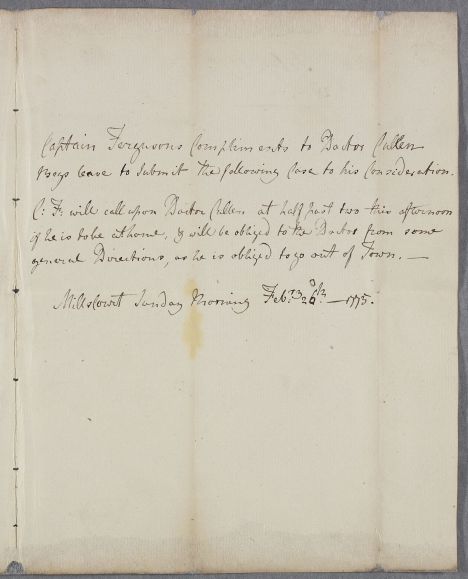 Captain Fergusons Compliments to Doctor Cullen
Begs leave to Submit The following Case to his Consideration.
C: F: will call upon Doctor Cullen at half past two this afternoon
if he is to be at home, & will be obliged to the Doctor from some
general Directions, as he is obliged to go out of Town. —
Millscourt Sunday Morning Feb:ry 26th. — 1775.